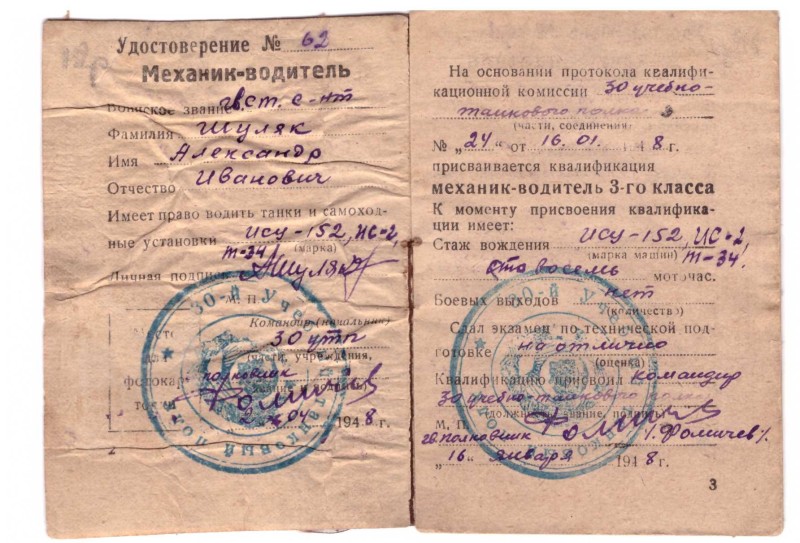 Удостоверение № 62
Механик-водитель
Воинское звание гв. ст. с-нт
Фамилия Шуляк
Имя Александр
Отчество Иванович
Имеет право водить танки и самоход-
ные установки ИСУ-152, ИС-2,
(марка)
Т-34
Личная подпись АШуляк
М П
Командир (начальник)
30 утп
(части, учреждения,
полковник
Фомичёв
04 1948 г.
30-й Учебный Танковый полк
На основании протокола квалифи-
кационной комиссии 30 учебно-
танкового полка
(части, соединения)
№ „24" от 16.01. 1948 г.
присваивается квалификация
механик-водитель 3-го класса
К моменту присвоения квалифика-
ции имеет:
Стаж вождения ИСУ-152, ИС-2,
(марка машин) Т-34,
сто восемь моточас.
Боевых выходов нет
(количество)
Сдал экзамен по технической под-
готовке на отлично
(оценка)
Квалификацию присвоил командир
30 учебно-танкового полка
(должность, звание, подпись)
М. П.
гв. полковник Фомичёв /Фомичев/
„16" января 1948 г.
3